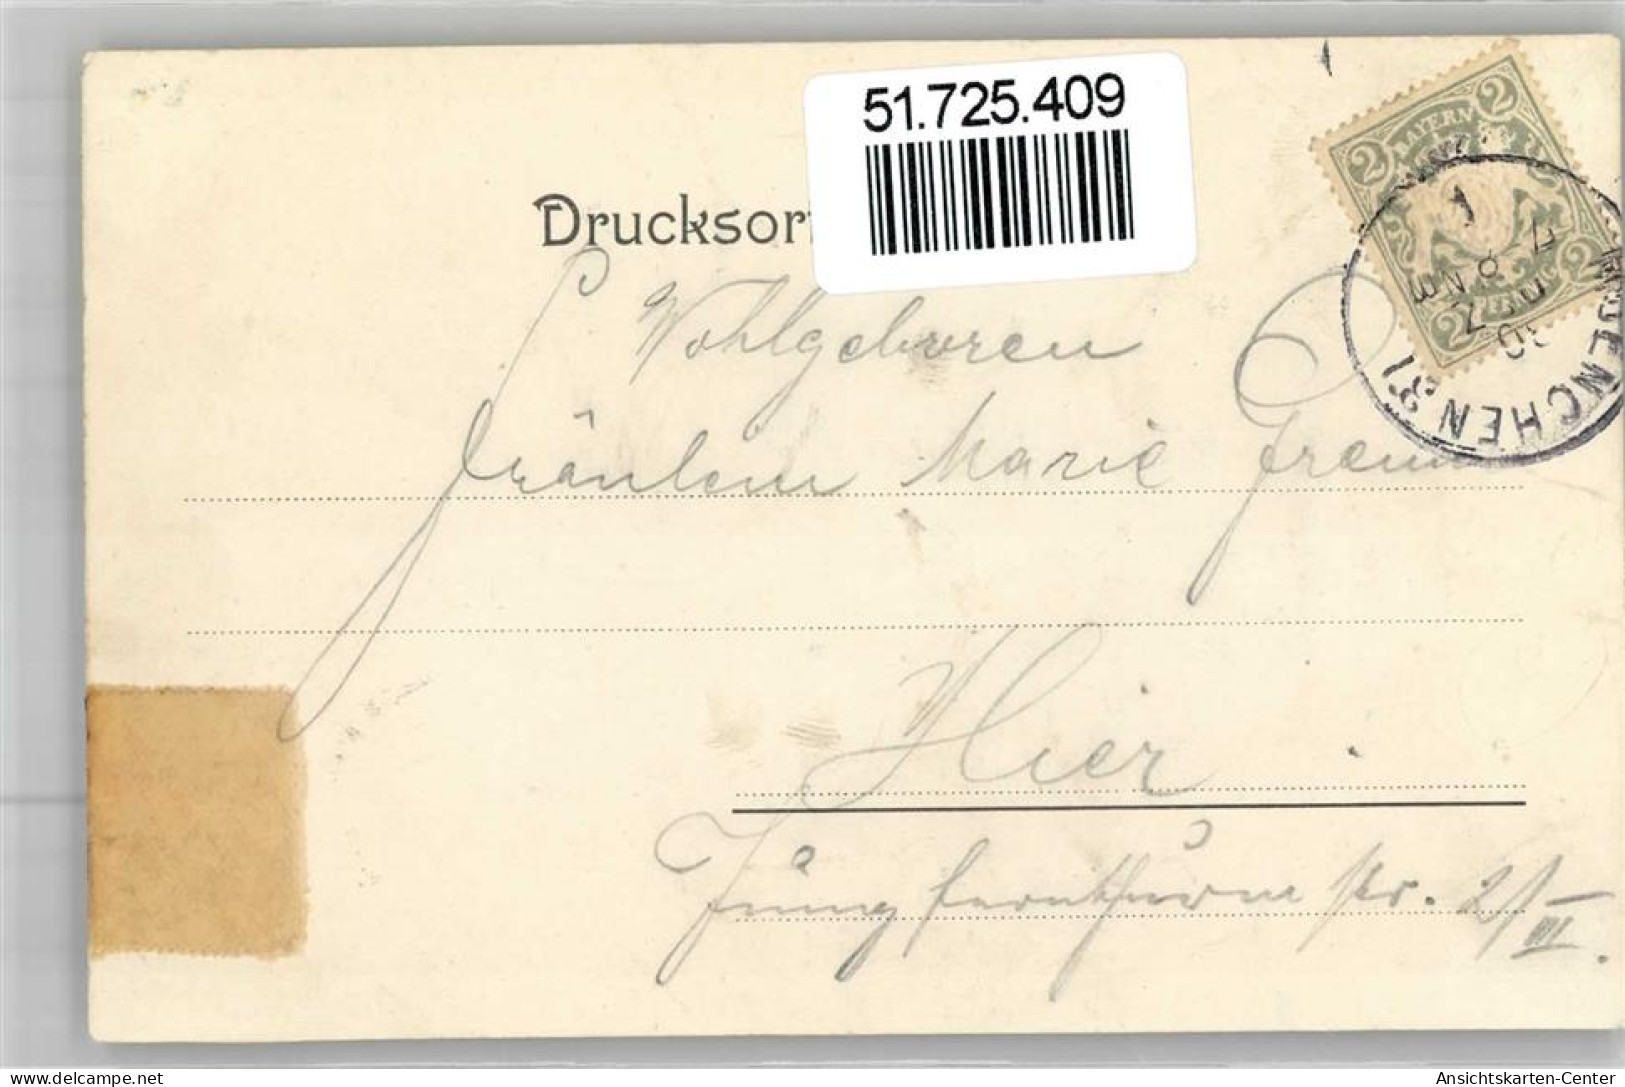 51.725.409
Drucksor
BAYERN
2 2
2 2
PFENNIG
MUENCHEN 31
Wohlgeboren
Fräulein Marie
Hier
Jungfernthurm str. 2/III.
delcampe.net
Ansichtskarten-Center